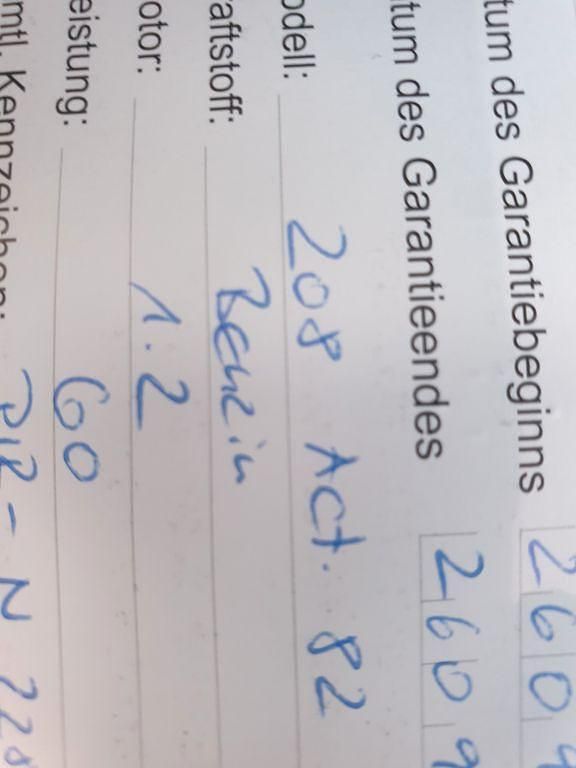 tum des Garantiebeginns 2 6 0
tum des Garantieendes 2 6 0 9
odell: 208 Act. 82
raftstoff: Benzin
otor: 1.2
eistung: 60
mtl. Kennzeichen: PIR - N 228